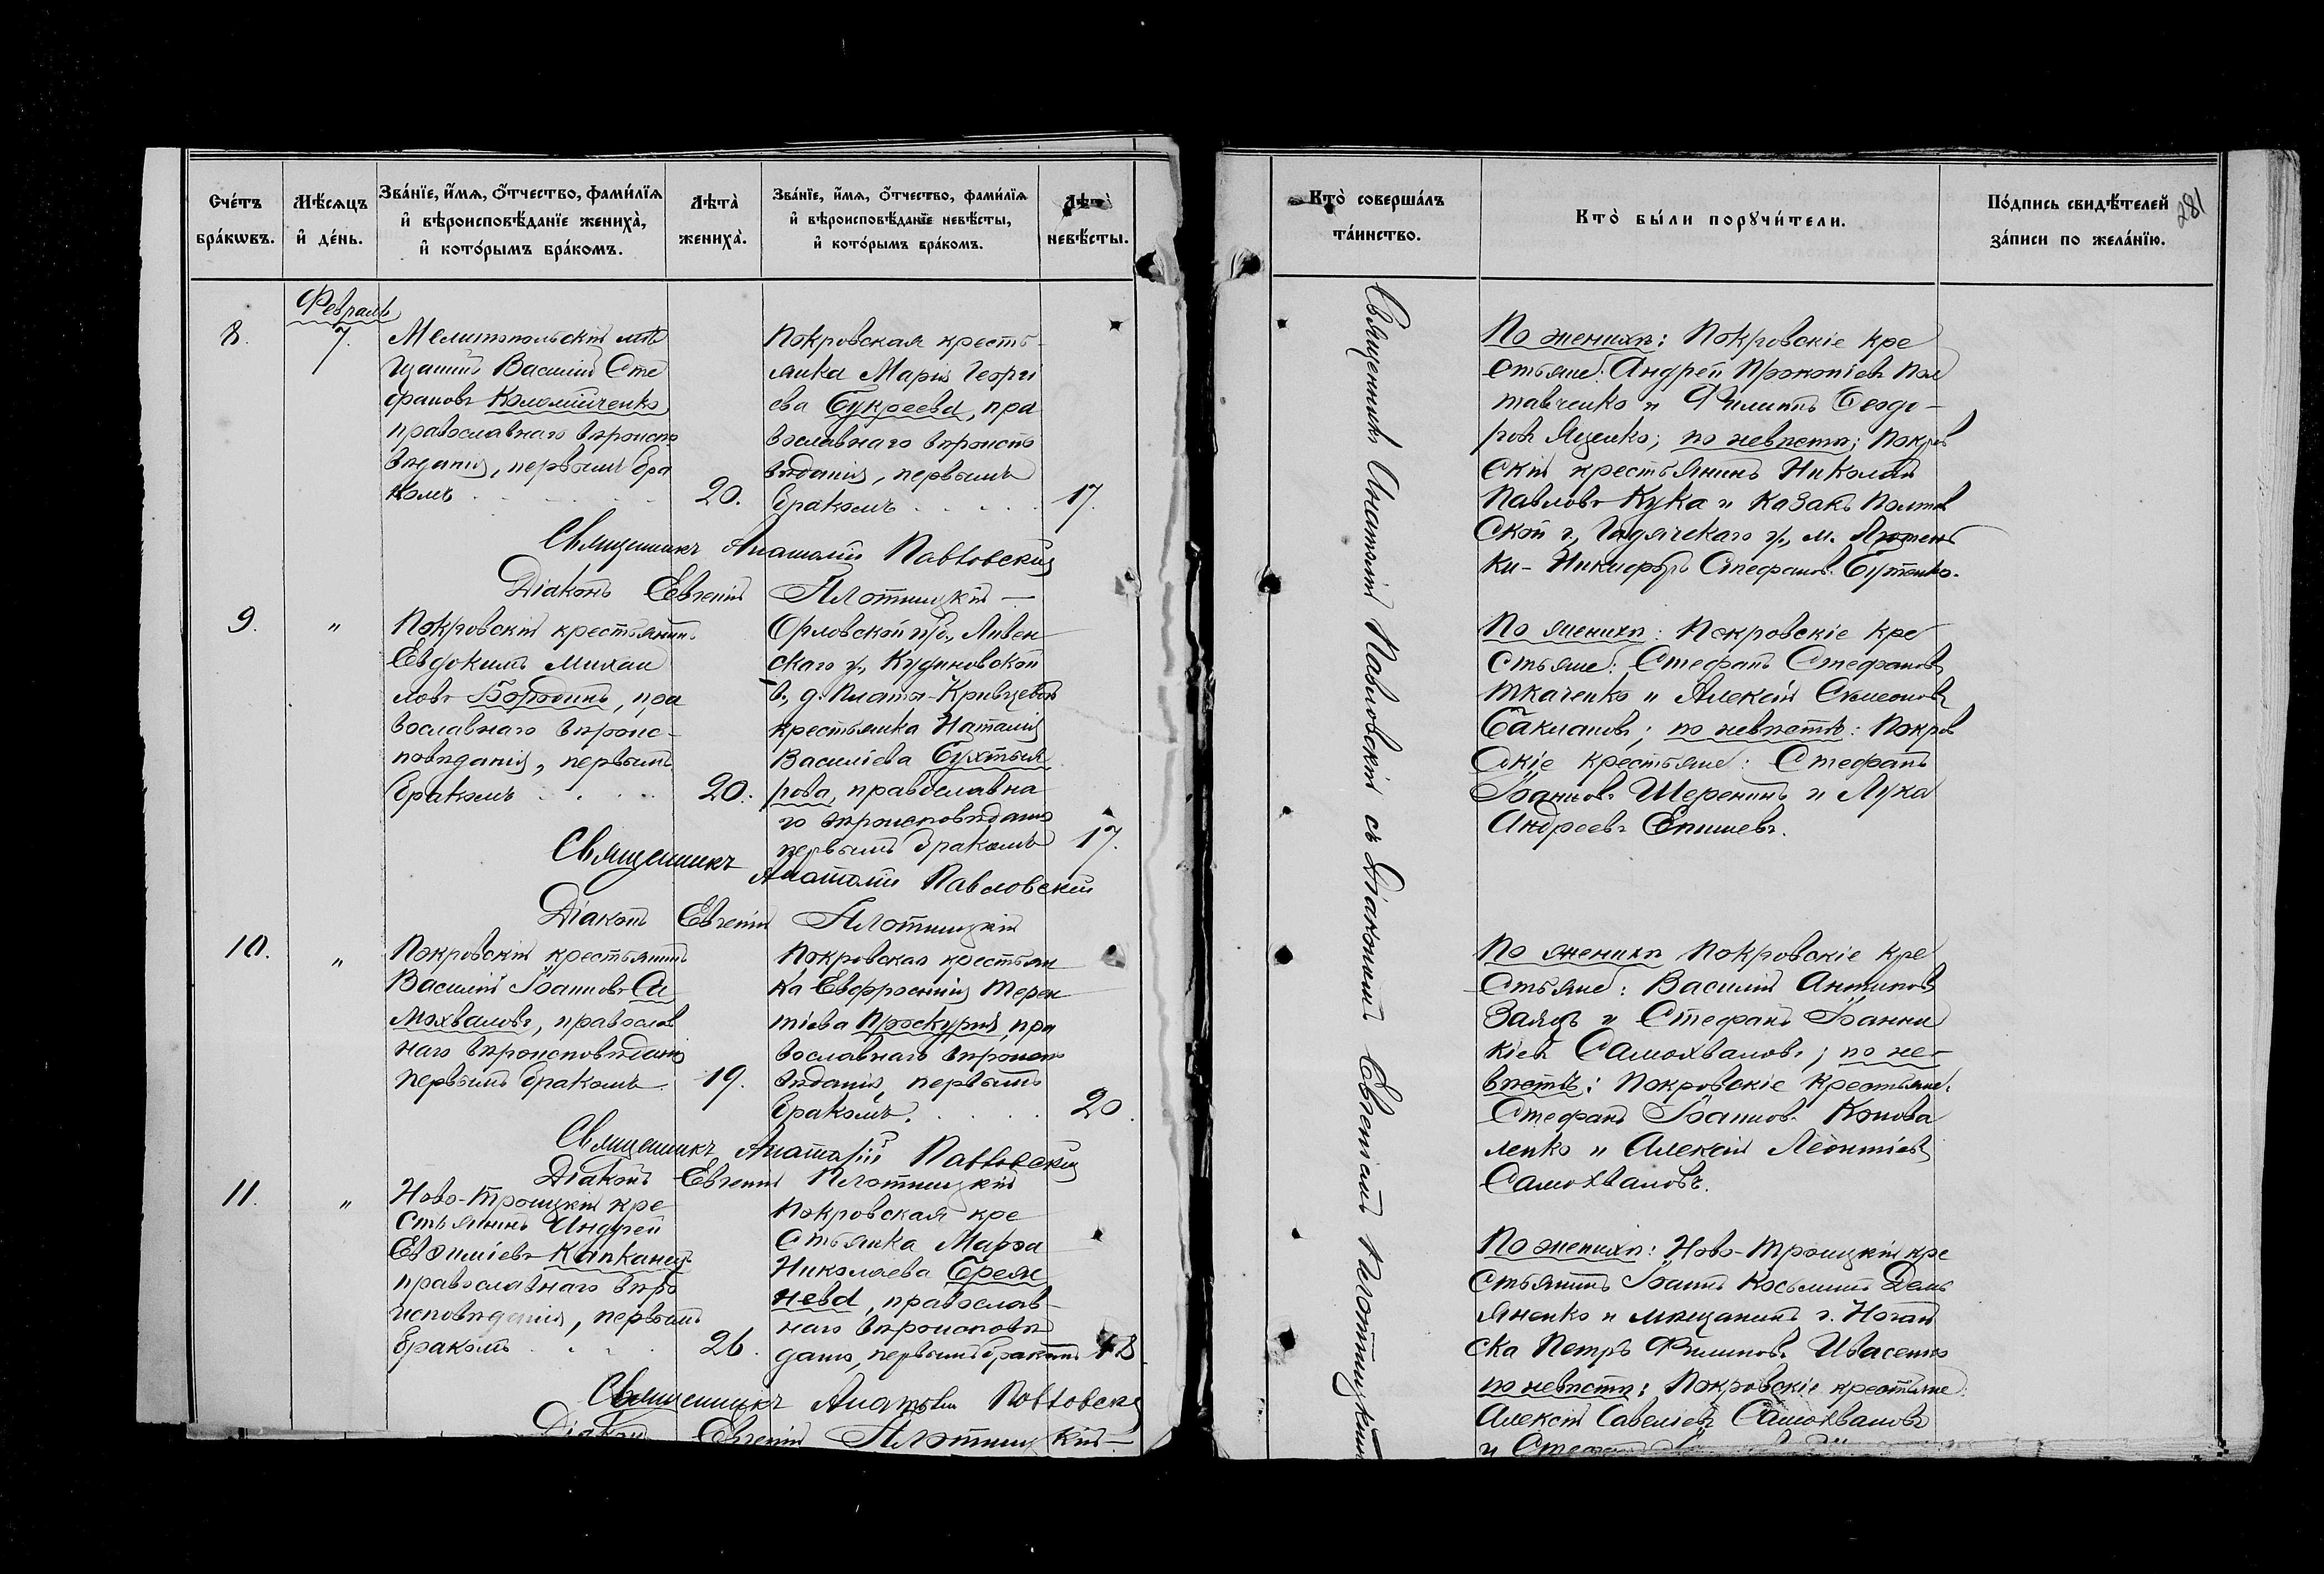 Счетъ бракωвъ.
Мѣсяцъ и день.
Званїе, имя, отчество, фамилїя и вѣроисповѣданїе жениха, и которымъ бракомъ.
Лѣта жениха.
Званїе, имя, отчество, фамилїя и вѣроисповѣданїе невѣсты, и которымъ бракомъ.
Лѣта невѣсты.
8.
Февраль
7.
Мелитопольскій мѣ
щанинъ Василій Сте
фановъ Коломійченко
православнаго вѣроиспо
вѣданія, первымъ бра
комъ
20.
Покровская кресть-
янка Марія Георгі
ева Букреева, пра
вославнаго вѣроиспо
вѣданія, первымъ
бракомъ
17.
Священникъ Анатолій Павловскій
Діаконъ Евгеній Плотницкій
9.
"
Покровскій крестьянинъ
Евдокимъ Михаи
ловъ Бородинъ, пра
вославнаго вѣроис-
повѣданія, первымъ
бракомъ
20.
Орловской губ., Ливен
скаго у., Кудиновской
в., д. Пиато-Кривцевой
крестьянка Наталія
Василіева Бухтыя
рова, православна
го вѣроисповѣданія
первымъ бракомъ
17.
Священникъ Анатолій Павловскій
Діаконъ Евгеній Плотницкій
10.
"
Покровскій крестьянинъ
Василій Іоанновъ Са
мохваловъ, православ
наго вѣроисповѣданія
первымъ бракомъ
19.
Покровская крестьян
ка Евфросинія Терен
тіева Проскурня, пра
вославнаго вѣроиспо
вѣданія, первымъ
бракомъ.
20.
Священникъ Анатолій Павловскій
Діаконъ Евгеній Плотницкій
11.
"
Ново-Троицкій кре
стьянинъ Андрей
Евѳиміевъ Капканецъ
православнаго вѣро
исповѣданія, первымъ
бракомъ
26.
Покровская кре
стьянка Марѳа
Николаева Брея
нева, православ-
наго вѣроисповѣ
данія, первымъ бракомъ
18
Священникъ Анатолій Павловскій
Діаконъ Евгеній Плотницкій
Кто совершалъ таинство.
Кто были порꙋчители.
Подпись свидѣтелей записи по желанїю.
281
Священникъ Анатолій Павловскій съ Діакономъ Евгеніемъ Плотницкимъ
По женихѣ: Покровскіе кре
стьяне: Андрей Прокопіевъ Пол
тавченко и Филиппъ Ѳеодо-
ровъ Яценко; по невѣстѣ: Покров
скій крестьянинъ Николай
Павловъ Кука и казакъ Полтав
ской г., Гадячскаго у., м. Лютень
ки - Никифоръ Стефановъ Бутенко.
По женихѣ: Покровскіе кре
стьяне: Стефанъ Стефановъ
Ткаченко и Алексій Симеоновъ
Баклановъ; по невѣстѣ: Покров
скіе крестьяне: Стефанъ
Іоанновъ Шеренинъ и Лука
Андреевъ Епишевъ.
По женихѣ Покровскіе кре
стьяне: Василій Антиповъ
Заяцъ и Стефанъ Іоанни
кіевъ Самохваловъ; по не-
вѣстѣ: Покровскіе крестьяне:
Стефанъ Іоанновъ Конова
ленко и Алексій Леонтіевъ
Самохваловъ.
По женихѣ: Ново-Троицкій кре
стьянинъ Іоаннъ Косьминъ Демь
яненко и мѣщанинъ г. Ногай
ска Петръ Филиповъ Ивасенко
по невѣстѣ: Покровскіе крестьяне:
Алексій Савеліевъ Самохваловъ
и Стефанъ